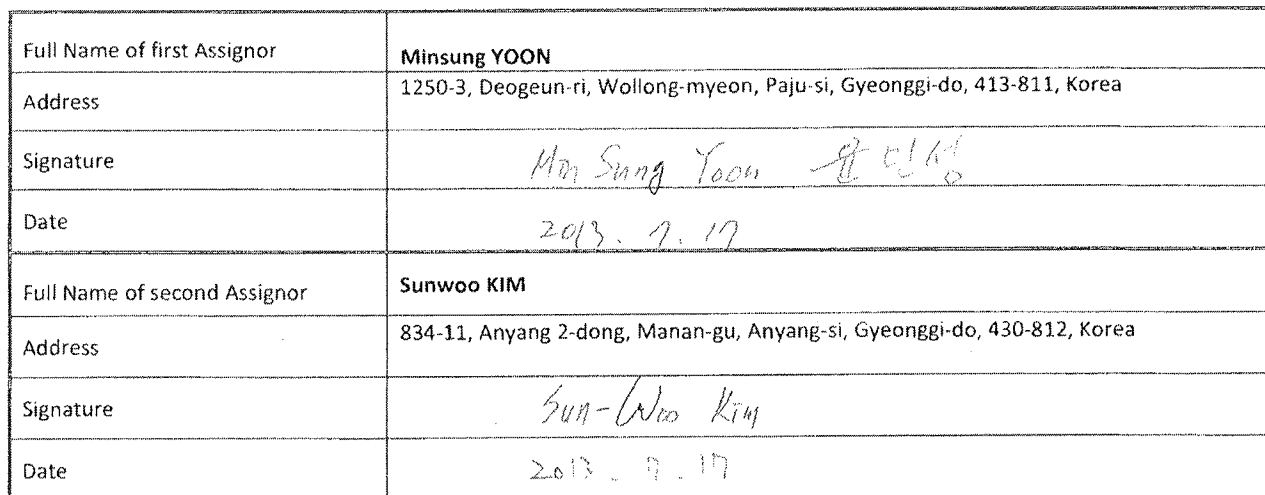 Full Name of first Assignor Minsung YOON
Address 1250-3, Deogeun-ri, Wollong-myeon, Paju-si, Gyeonggi-do, 413-811, Korea
Signature Min Sung Yoon 윤민성
Date 2013. 7. 17
Full Name of second Assignor Sunwoo KIM
Address 834-11, Anyang 2-dong, Manan-gu, Anyang-si, Gyeonggi-do, 430-812, Korea
Signature Sun-Woo Kim
Date 2013. 7. 17